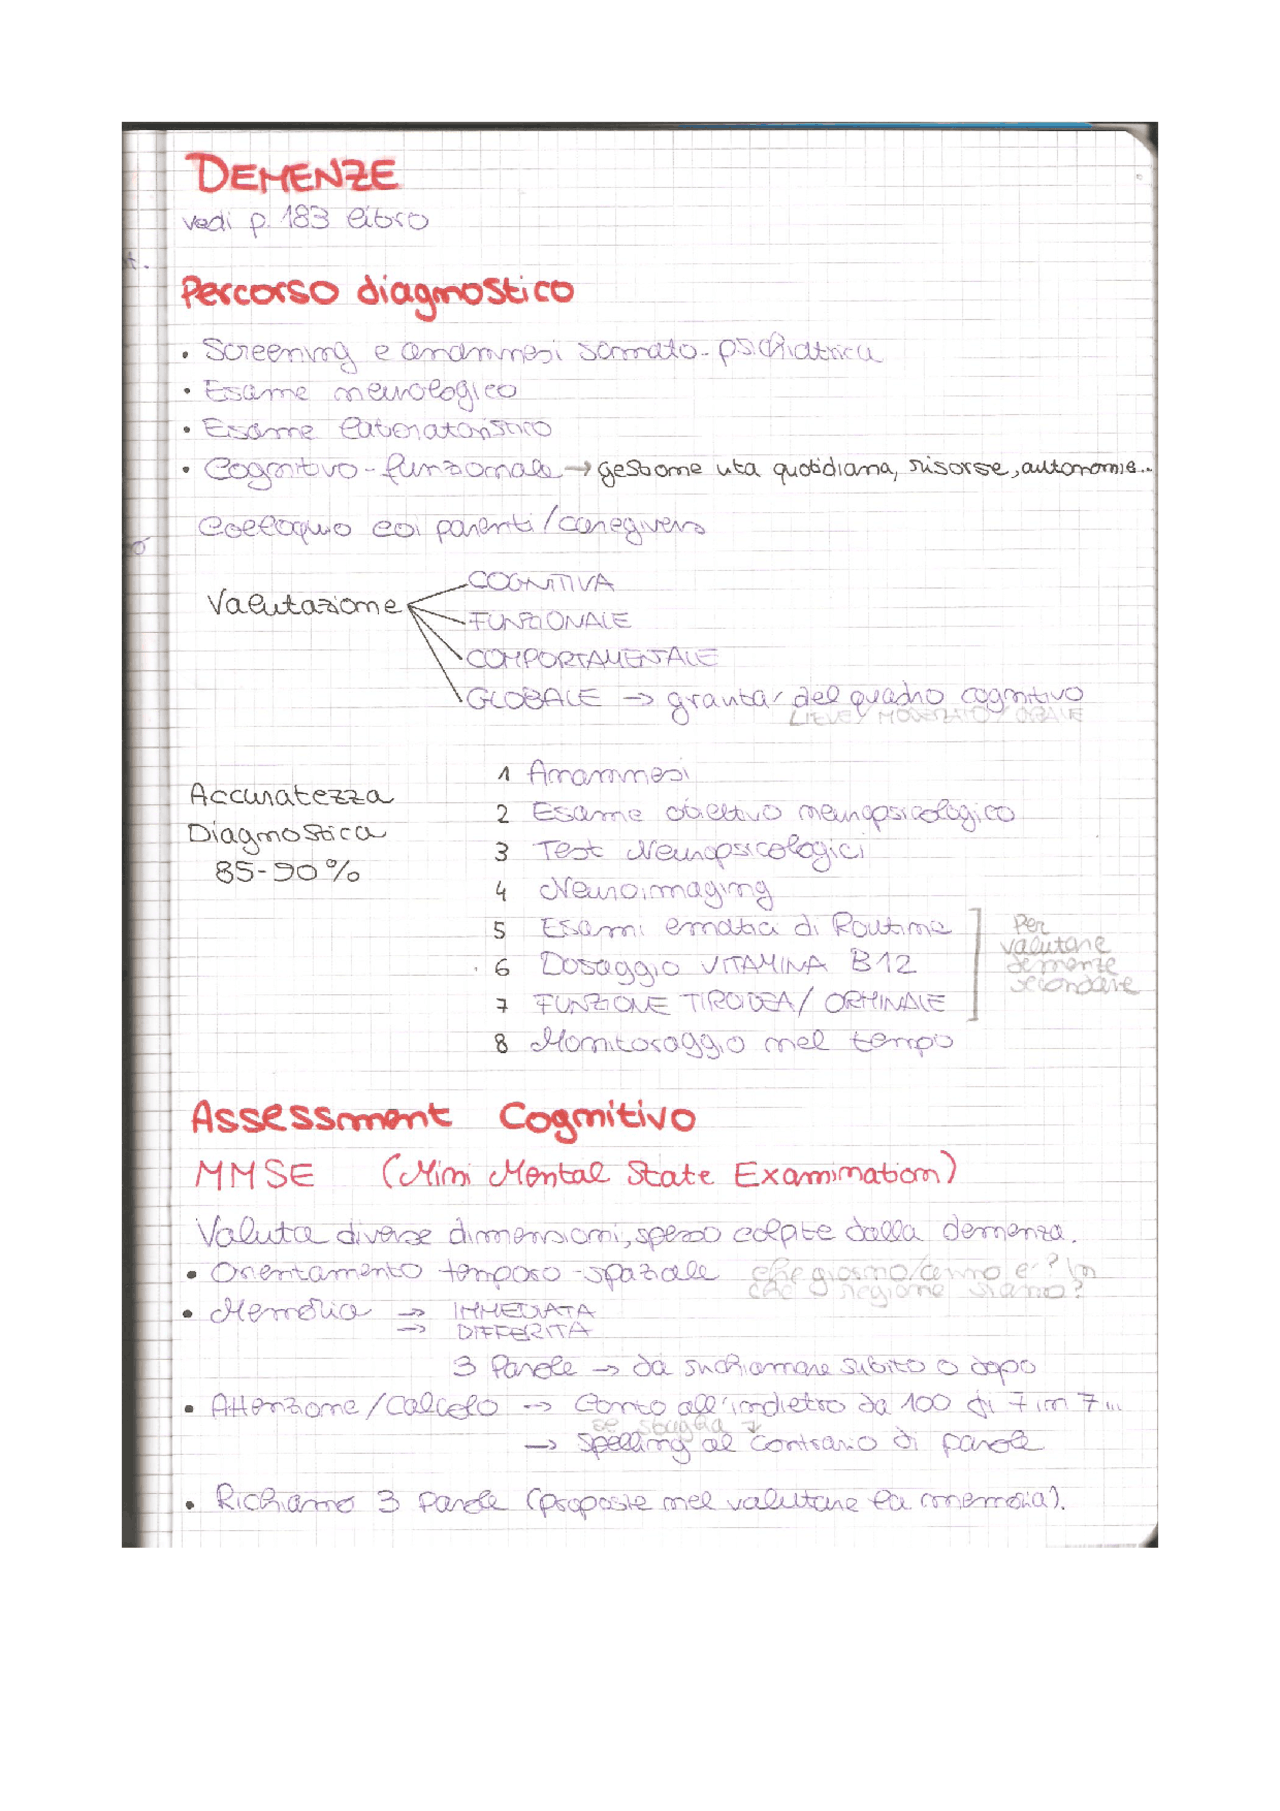 DEMENZE
vedi p. 183 libro
t.
Percorso diagnostico
• Screening e anamnesi somato-psichiatrica
• Esame neurologico
• Esame laboratoristico
• Cognitivo-funzionale → gestione vita quotidiana, risorse, autonomie...
Colloquio coi parenti/caregivers
Valutazione
COGNITIVA
FUNZIONALE
COMPORTAMENTALE
GLOBALE → gravita' del quadro cognitivo
LIEVE / MODERATO /
Accuratezza
Diagnostica
85-90%
1 Anamnesi
2 Esame obiettivo neuropsicologico
3 Test Neuropsicologici
4 Neuroimaging
5 Esami ematici di Routine
6 Dosaggio VITAMINA B12
7 FUNZIONE TIROIDEA / ORMINALE
8 Monitoraggio nel tempo
Per
valutare
demenze
secondarie
Assessment Cognitivo
MMSE (Mini Mental State Examination)
Valuta diverse dimensioni, spesso colpite dalla demenza.
• Orientamento temporo-spaziale che giorno/anno e'? In
che regione siamo?
• Memoria → IMMEDIATA
→ DIFFERITA
3 Parole → da richiamare subito o dopo
• Attenzione/Calcolo → Conto all'indietro da 100 di 7 in 7...
se sbaglia ↓
→ Spelling al contrario di parole
• Richiamo 3 Parole (proposte nel valutare la memoria).